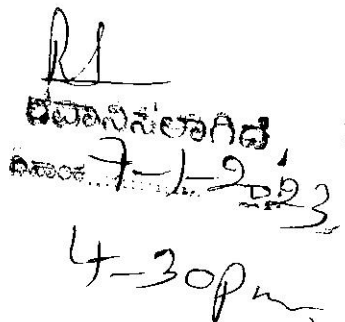 ರವಾನಿಸಲಾಗಿದೆ
ದಿನಾಂಕ 7-1-2023
4-30pm